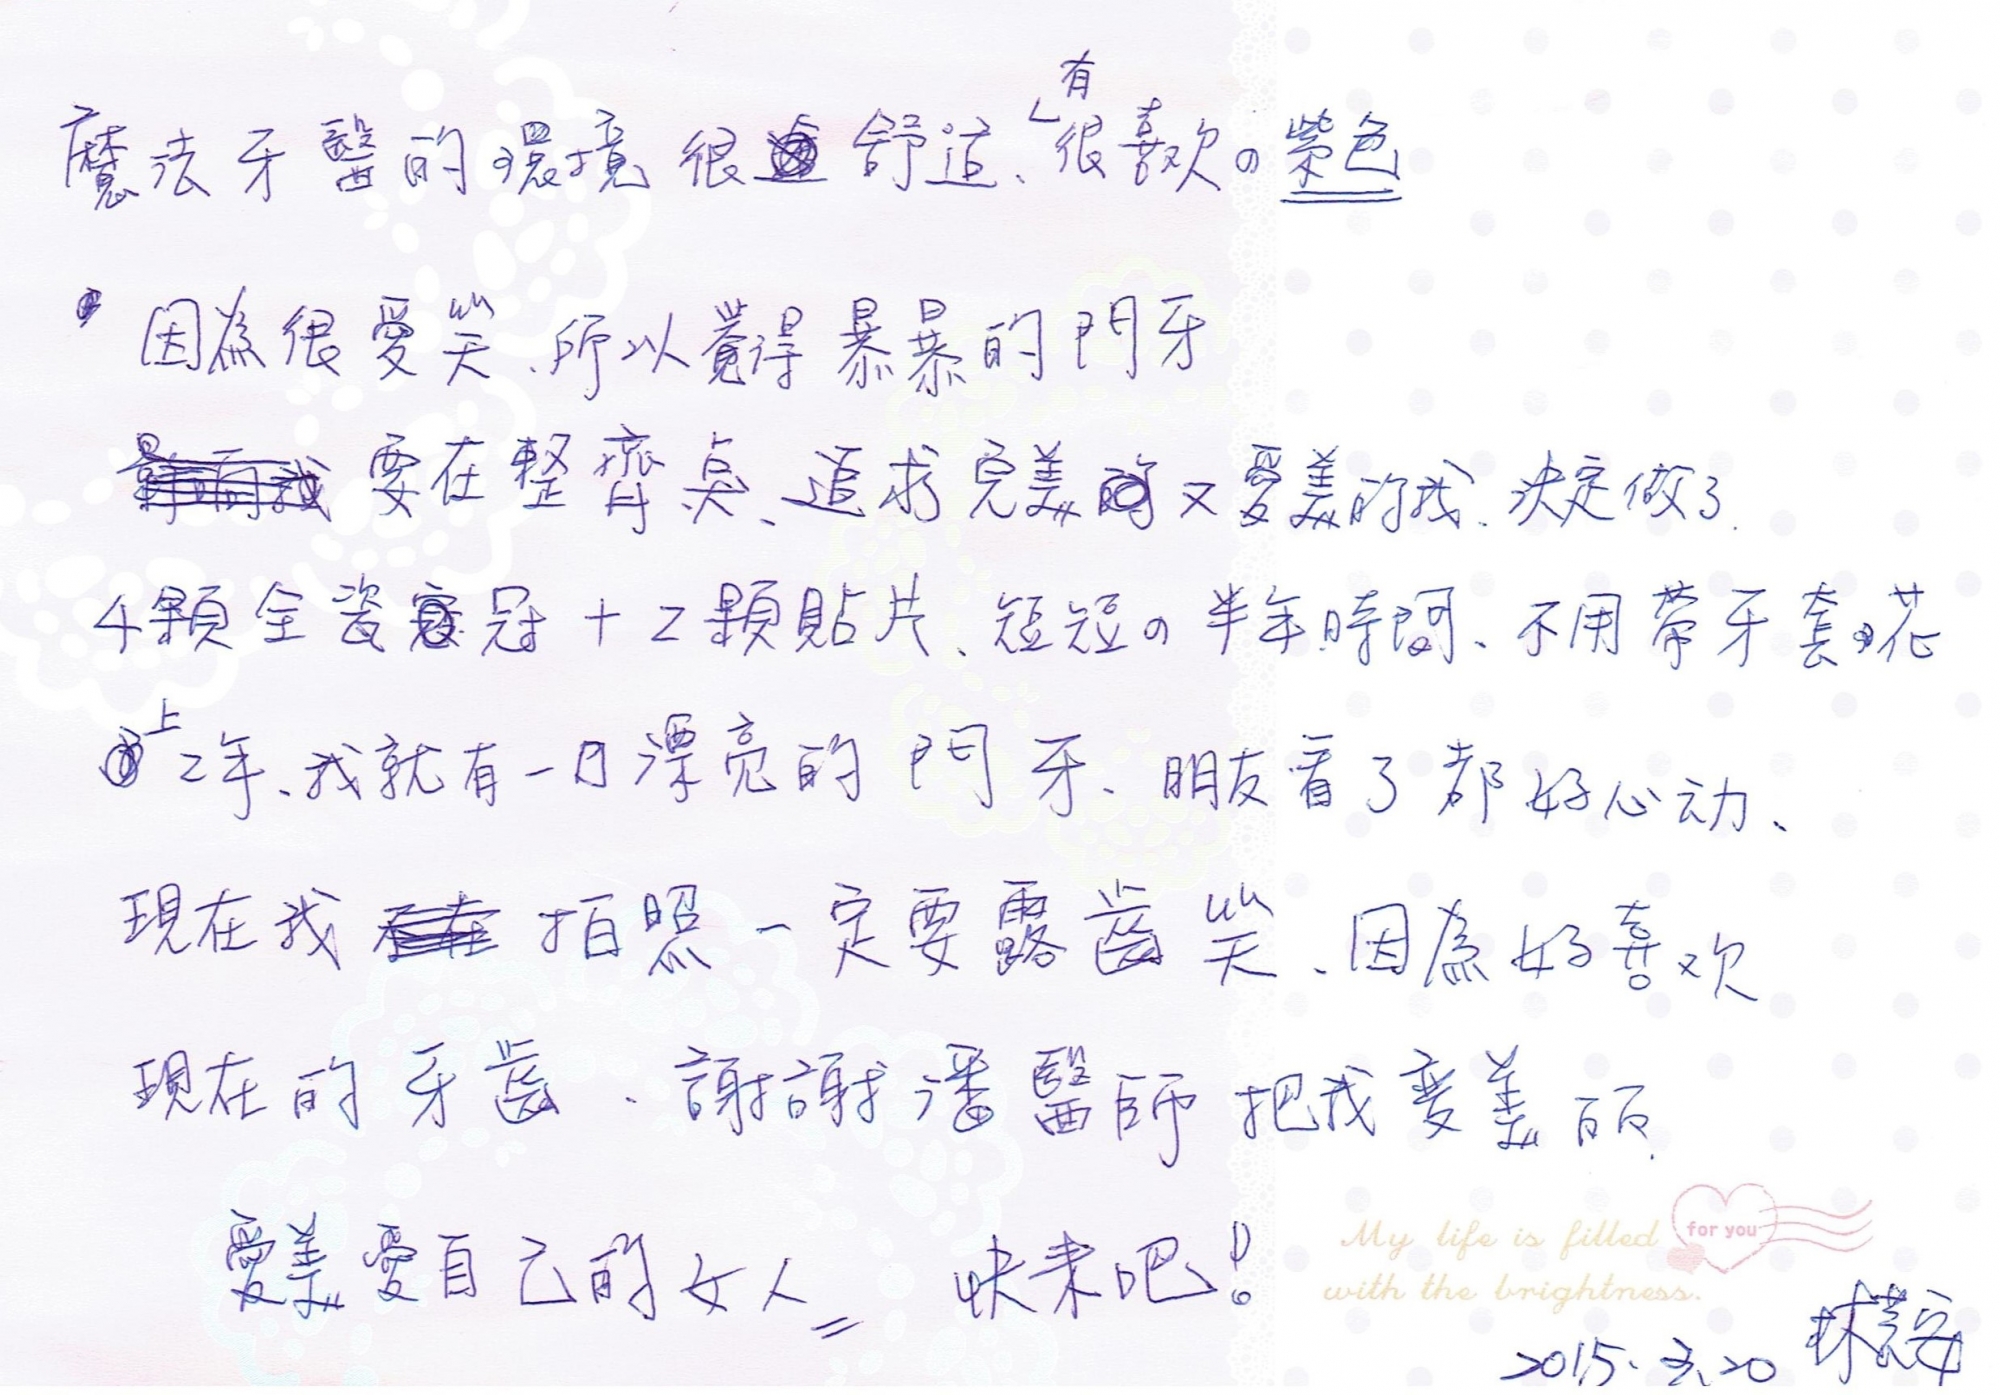 魔法牙醫的環境很舒适、有很喜欢の紫色
因為很愛笑、所以覺得暴暴的門牙
要在整齊点、追求完美又愛美的我、決定做了
4顆全瓷冠+2顆貼片、短短の半年時間、不用帶牙套花
上2年、我就有一口漂亮的門牙、朋友看了都好心动、
現在我拍照一定要露齒笑、因為好喜欢
現在的牙齒、謝謝潘醫師把我变美丽
愛美愛自己的女人 快来吧!
My life is filled
for you
with the brightness.
2015.3.20